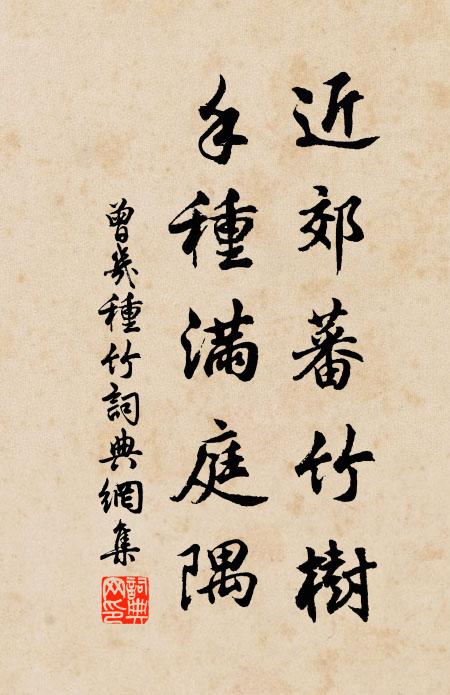 近郊蕃竹樹
手種滿庭隅
曾幾種竹詞典網集
詞典網印